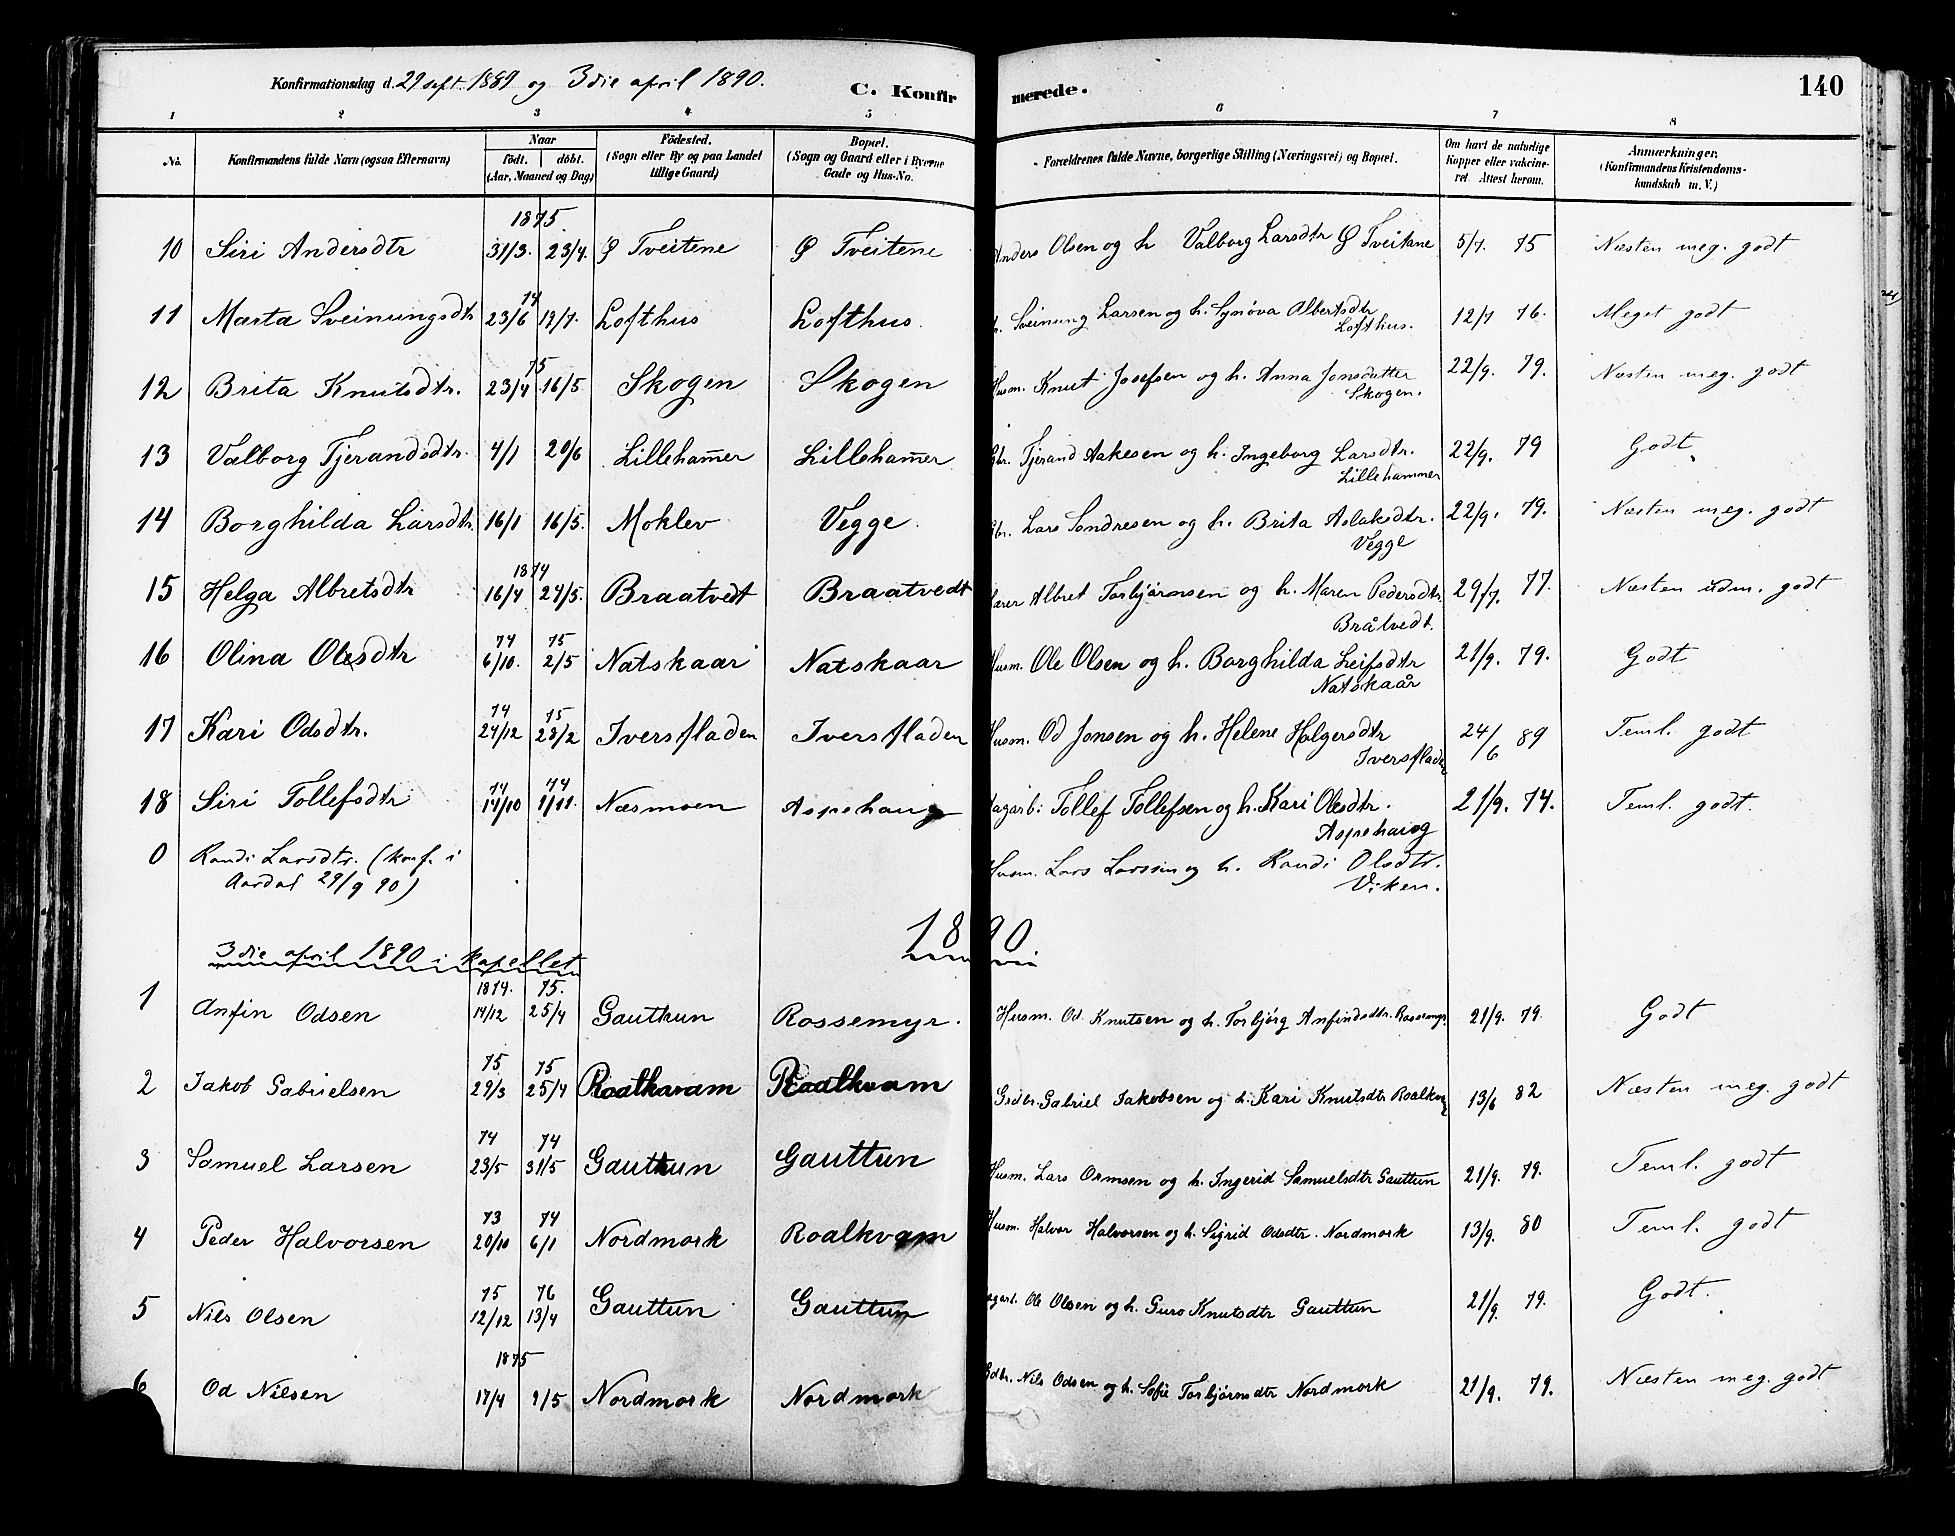 Konfirmationsdag d. 29 sept. 1889 og 3die april 1890. C. Konfirmerede. 140
1 2 3 4 5 6 7 8
No. Konfirmandens fulde Navn (ogsaa Efternavn) Naar födt. döbt. (Aar, Maaned og Dag) Födested. (Sogn eller By og paa Landet tillige Gaard) Bopæl. (Sogn og Gaard eller i Byerne Gade og Hus-No. Forældrenes fulde Navne, borgerlige Stilling (Næringsvei) og Bopæl. Om havt de naturlige Kopper eller vakcineret Attest herom. Anmærkninger. (Konfirmandens Kristendomskundskab m. V.)
1875.
10 Siri Andersdtr 31/3. 23/4. Ø Tveitene Ø Tveitene Anders Olsen og h Valborg Larsdtr Ø Tveitene 5/7. 75 Næsten meg. godt
74
11 Marta Sveinungsdtr 23/6 19/7. Lofthus Lofthus. Sveinung Larsen og h. Synöva Olbertsdtr 12/7 76. Meget godt
Lofthus.
75
12 Brita Knutsdtr. 23/4 16/5 Skogen Skogen Husm. Knut Josefsen og h. Anna Jonsdatter 22/9. 79. Næsten meg. godt
Skogen.
13 Valborg Tjerandsdtr. 4/1 20/6 Lilleham̅er Lilleham̅er Gbr. Tjerand Aakesen og h. Ingeborg Larsdtr. 22/9. 79 Godt
Lillehammer
14 Borghilda Larsdtr. 16/1 16/5. Moklev Vegge Gbr. Lars Sondresen og h. Brita Aslaksdtr. 22/9. 79. Næsten meg. godt
Vegge
1874
15 Helga Albretsdtr 16/4 24/5. Braatvedt Braatvedt Lærer Albret Torbjörnsen og h. Maren Pedersdtr. 29/7. 77. Næsten udm. godt
Bråtvedt.
74 75
16 Olina Olesdtr 6/10. 2/5 Natskaar Natskaar Husm. Ole Olsen og h. Borghilda Leifsdtr 21/9. 79. Godt
Natskaår
74 75
17 Kari Odsdtr. 24/12 28/2 Iversfladen Iversfladen Husm. Od Jonsen og h. Helene Holgersdtr 24/6 89 Teml. godt
Iversfladen
74 74
18 Siri Tollefsdtr 14/10 1/11. Næsmoen Aspehaug Dagarb: Tollef Tollefsen og h. Kari Olesdtr. 21/9. 74. Teml. godt.
Aspehaug
0 Randi Larsdtr. (konf. i Husm. Lars Larssen og h. Randi Olsdtr.
Aardal 29/9 90) Viken.
1890.
3die april 1890 i kapellet
1874. 75.
1 Anfin Odsen 14/12 25/4 Gauthun Rossemyr. Husm. Od. Knutsen og h. Torbjörg Anfindsdtr. Rossemyr. 21/9. 79. Godt
75 75
2 Jakob Gabrielsen 29/3 25/4 Roalkvam Roalkvam Gbdr. Gabriel Jakobsen og h. Kari Knutsdtr Roalkvam 13/6 82 Næsten meg. godt
74 74
3 Samuel Larsen 23/5 31/5 Gauthun Gauttun Husm. Lars Ormsen og h. Ingerid Samuelsdtr Gauttun 21/9. 79. Teml. godt
73 74
4 Peder Halvorsen 20/10 6/1 Nordmork Roalkvam Husm. Halvor Halvorsen og h. Sigrid Odsdtr. Nordmork 13/9. 80 Teml. godt
75 76
5 Nils Olsen 12/12 13/4 Gauttun Gauttun Dagarb. Ole Olsen og h. Guro Knutsdtr Gauttun 21/9. 79. Godt.
1875
6 Od Nilsen 17/4 9/5 Nordmork Nordmork Gbdr. Nils Odsen og h. Sofie Torbjörnsdtr Nordmork 21/9. 79. Næsten meg. godt